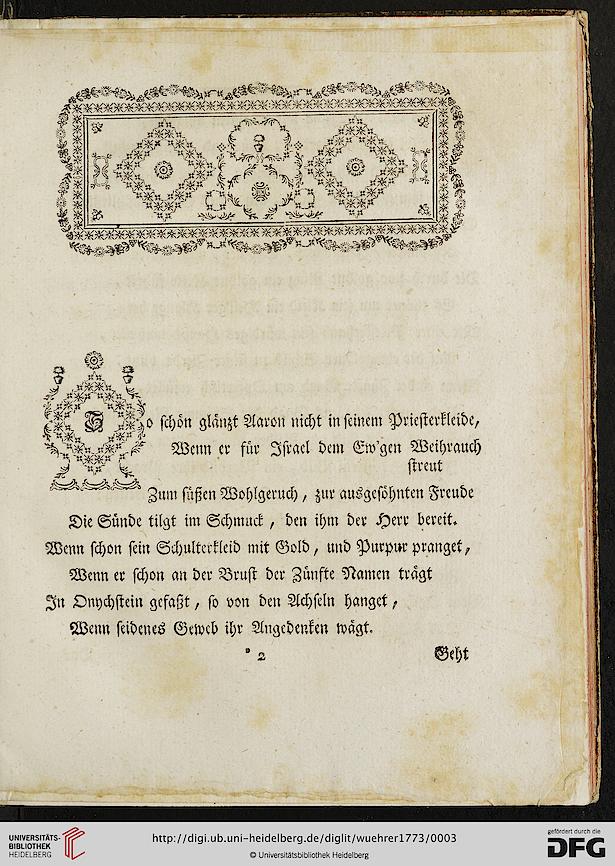 So schön glänzt Aaron nicht in seinem Priesterkleide,
Wenn er für Israel dem Ew'gen Weihrauch
streut
Zum süßen Wohlgeruch, zur ausgesöhnten Freude
Die Sünde tilgt im Schmuck, den ihm der Herr bereit.
Wenn schon sein Schulterkleid mit Gold, und Purpur pranget,
Wenn er schon an der Brust der Zünfte Namen trägt
In Onychstein gefaßt, so von den Achseln hanget,
Wenn seidenes Geweb ihr Angedenken wägt.
* 2
Geht
UNIVERSITÄTS-
BIBLIOTHEK
HEIDELBERG
http://digi.ub.uni-heidelberg.de/diglit/wuehrer1773/0003
© Universitätsbibliothek Heidelberg
gefördert durch die
DFG